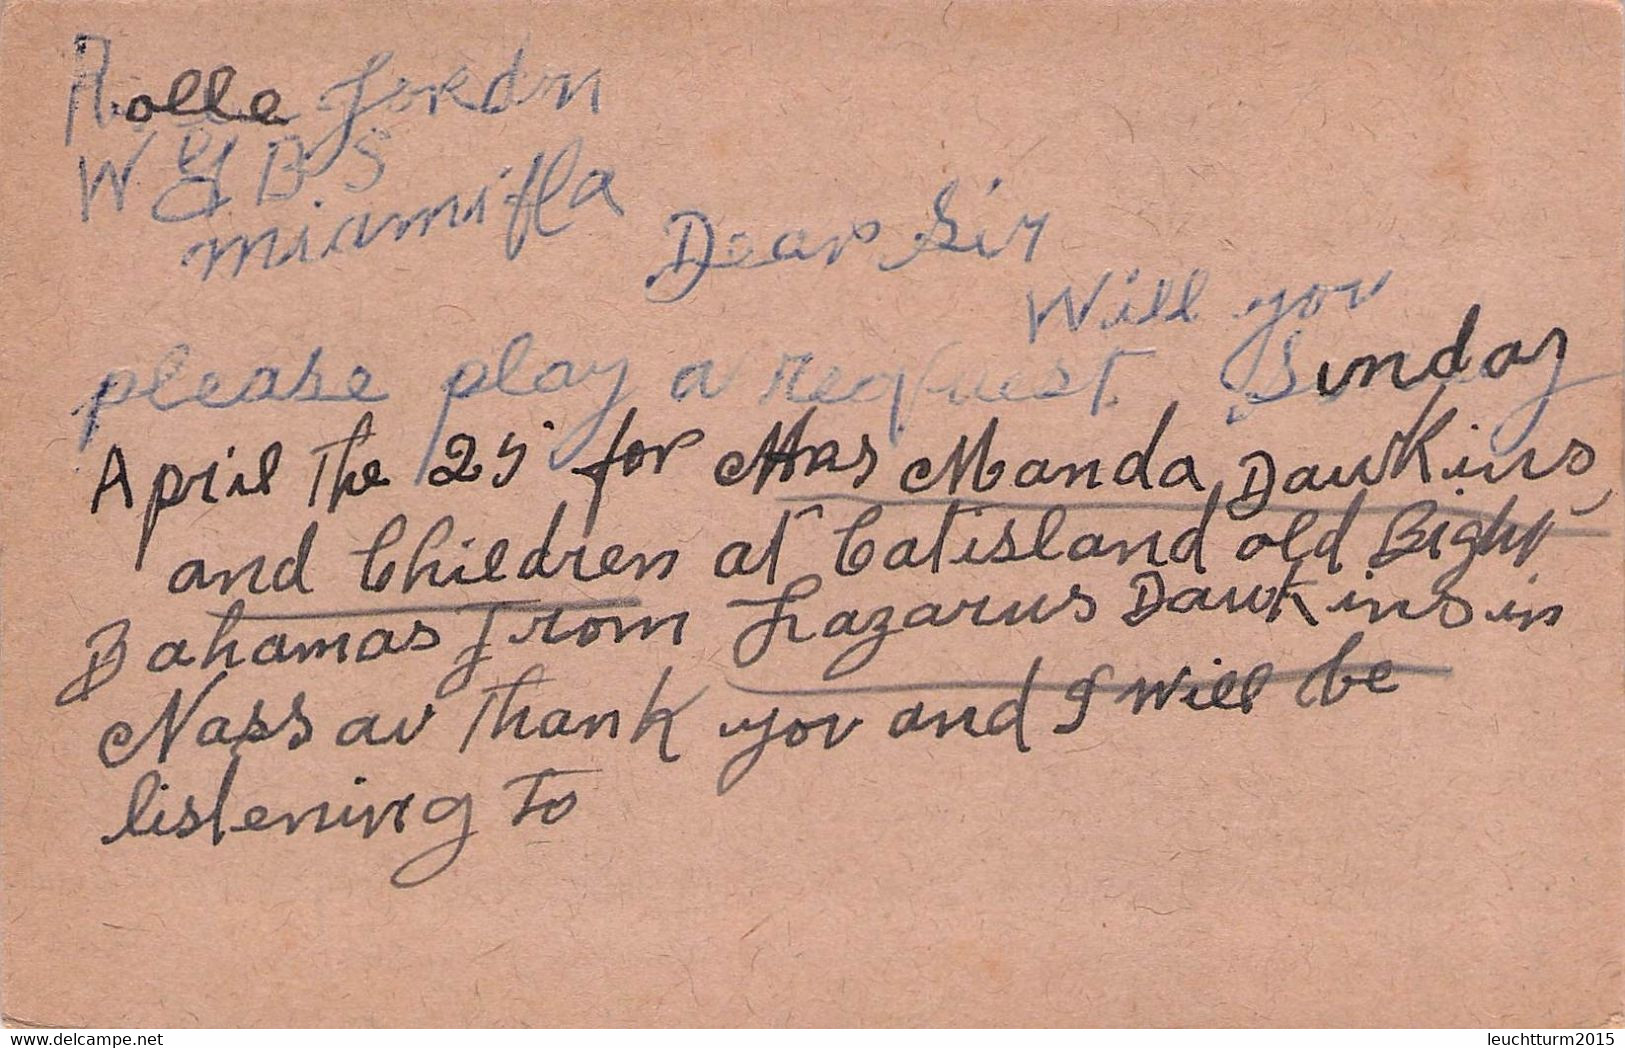 Rolle Jordn
W G B S
miami fla
Dear Sir
Will you
please play a request Sunday
April The 25 for Mrs Manda Dawkins
and Children at Catisland old Bight
Bahamas From Lazarus Dawkins in
Nassau Thank you and I will be
listening To
www.delcampe.net
leuchtturm2015